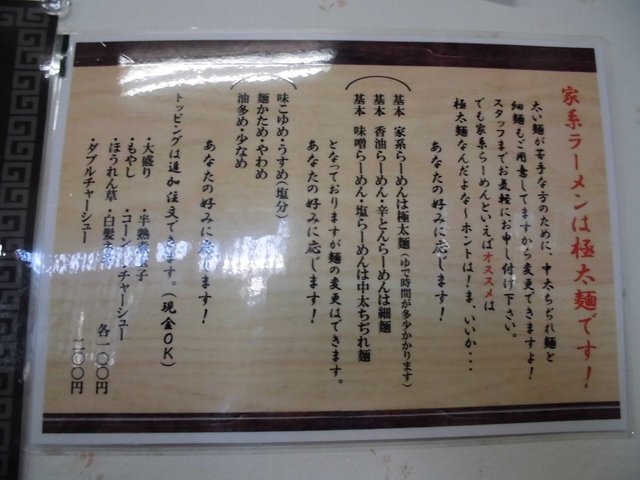 家系ラーメンは極太麺です！
太い麺が苦手な方のために、中太ちぢれ麺と
細麺もご用意してますから変更できますよ！
スタッフまでお気軽にお申し付け下さい。
でも家系らーめんといえばオススメは
極太麺なんだよな〜ホントは！ま、いいか・・・
あなたの好みに応じます！
基本 家系らーめんは極太麺（ゆで時間が多少かかります）
基本 香油らーめん・辛とんらーめんは細麺
基本 味噌らーめん・塩らーめんは中太ちぢれ麺
となっておりますが麺の変更はできます。
あなたの好みに応じます！
味こゆめ・うすめ（塩分）
麺かため・やわめ
油多め・少なめ
あなたの好みに応じます！
トッピングは追加注文できます。（現金OK）
・大盛り ・半熟 子
・もやし ・コーン チャーシュー
・ほうれん草 ・白髪 各一〇〇円
・ダブルチャーシュー 二〇〇円